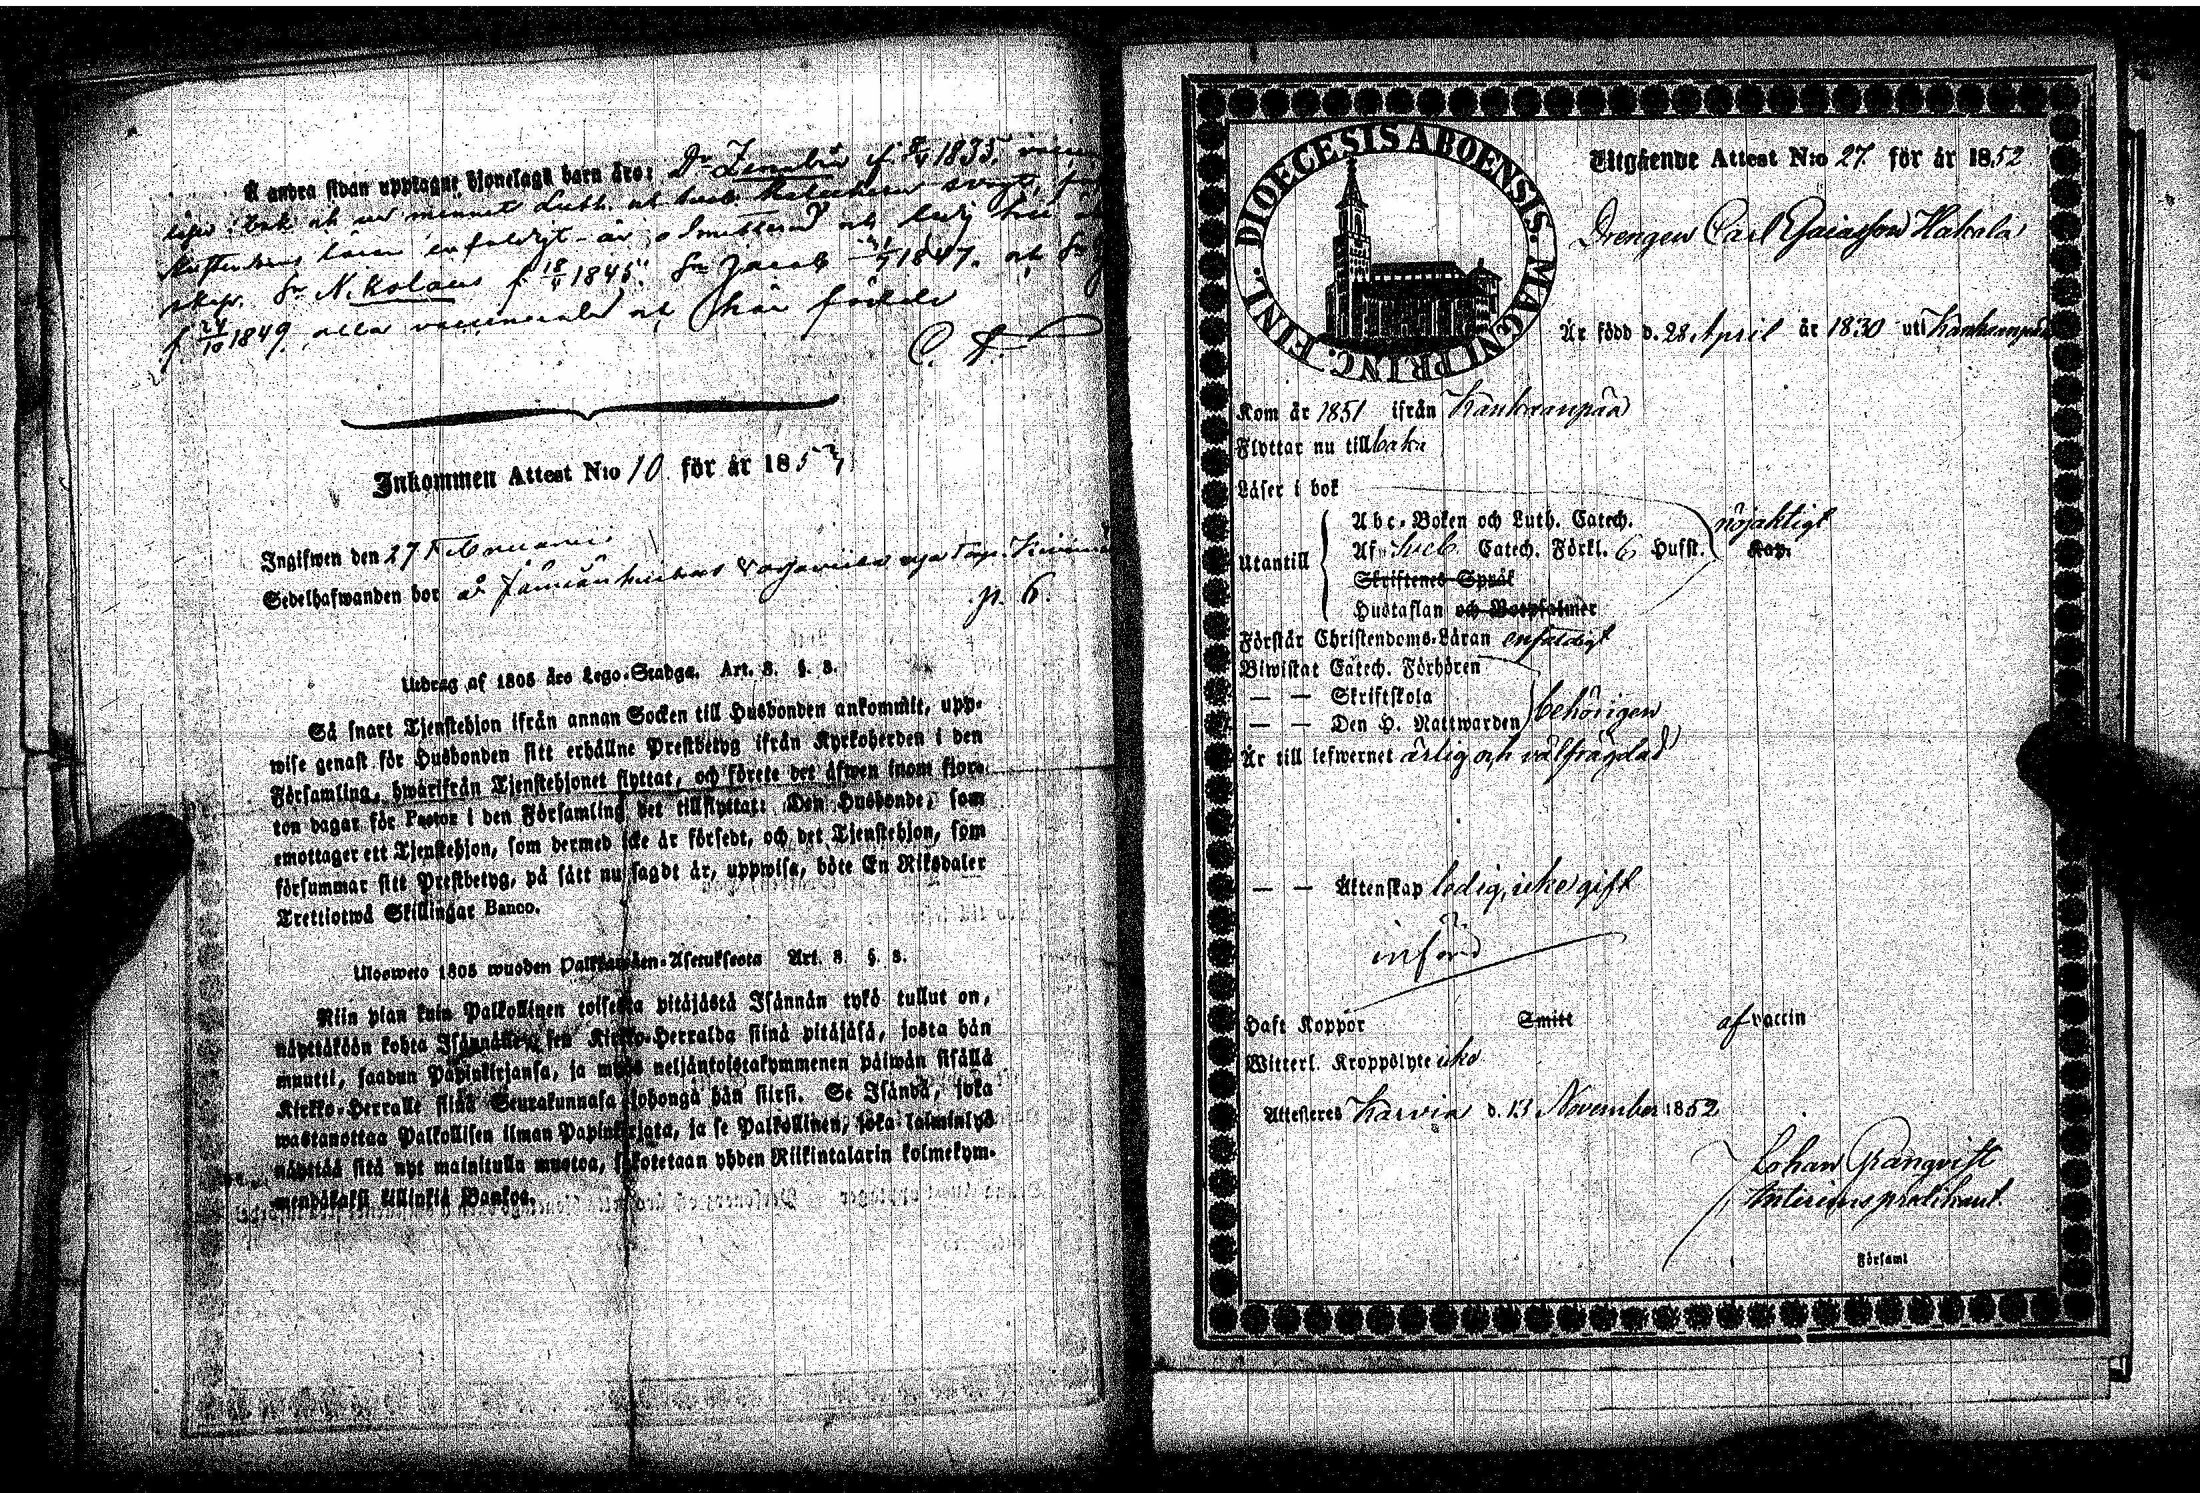 Å andra sidan upptagne hjonelags barn äro: Dr f. 1835
enfaldigt
Sn Nikolaus f 18/4 1845. Sn Jacob 1847. och Sn
f 24/10 1849, alla vaccinerade och här födde
C.
Inkommen Attest N:o 10 för år 185
Ingifwen den 27 Februari
Sedelhafwanden bor å
p. 6.
Utdrag af 1805 års Lego-Stadga. Art. 3. §. 3.
Så snart Tjenstehjon ifrån annan Socken till Husbonden ankommit, upp-
wise genast för Husbonden sitt erhållne Prestbetyg ifrån Kyrkoherden i den
Församling, hwarifrån Tjenstehjonet flyttat, och förete det äfwen inom fjor-
ton dagar för Pastor i den Församling det tillflyttat: Den Husbonde, som
emottager ett Tjenstehjon, som dermed icke är försedt, och det Tjenstehjon, som
försummar sitt Prestbetyg, på sätt nu sagdt är, uppwisa, böte En Riksdaler
Trettiotwå Skillingar Banco.
Ulosweto 1805 wuoden Palkkawäen-Asetuksesta Art. 3. §. 3.
Niin pian kuin Palkollinen toisesta pitäjästä Isännän tykö tullut on,
näyttäköön kohta Isännälle, sen Kirkko-Herralda siinä pitäjäsä, josta hän
muutti, saadun Papinkirjansa, ja myös neljäntoistakymmenen päiwän sisällä
Kirkko-Herralle siinä Seurakunnasa johonga hän siirsi. Se Isändä, joka
wastanottaa Palkollisen ilman Papinkirjata, ja se Palkollinen, joka laiminlyö
näyttää sitä nyt mainitulla muotoa, sakotetaan yhden Riikintalarin kolmekym-
mendäkaksi killinkiä Bankoa.
DIOECESIS ABOENSIS. MAGNI PRINC. FINL.
Utgående Attest N:o 27 för år 1852
Drengen Carl Esaiasson Hakala
Är född d. 28 April år 1830 uti Kankaanpää
Kom år 1851 ifrån Kankaanpää
Flyttar nu tillbaka
Läser i bok
Utantill
Abc-Boken och Luth. Catech. nöjaktigt
Af Sveb. Catech. Förkl. 6 Hufst. Kap.
Skriftenes Språk
Hustaflan och Botpsalmer
Förstår Christendoms-Läran enfaldigt
Biwistat Catech. Förhören
— — Skriftskola
— — Den H. Nattwarden behörigen
Är till lefwernet ärlig och välfrägdad
— — Äktenskap ledig, icke gift
införd
Haft Koppor Smitt af vaccin
Witterl. Kroppslyte icke
Attesteres Karvia d. 13 November 1852
Johan Granqvist
Interims predikant.
Församl